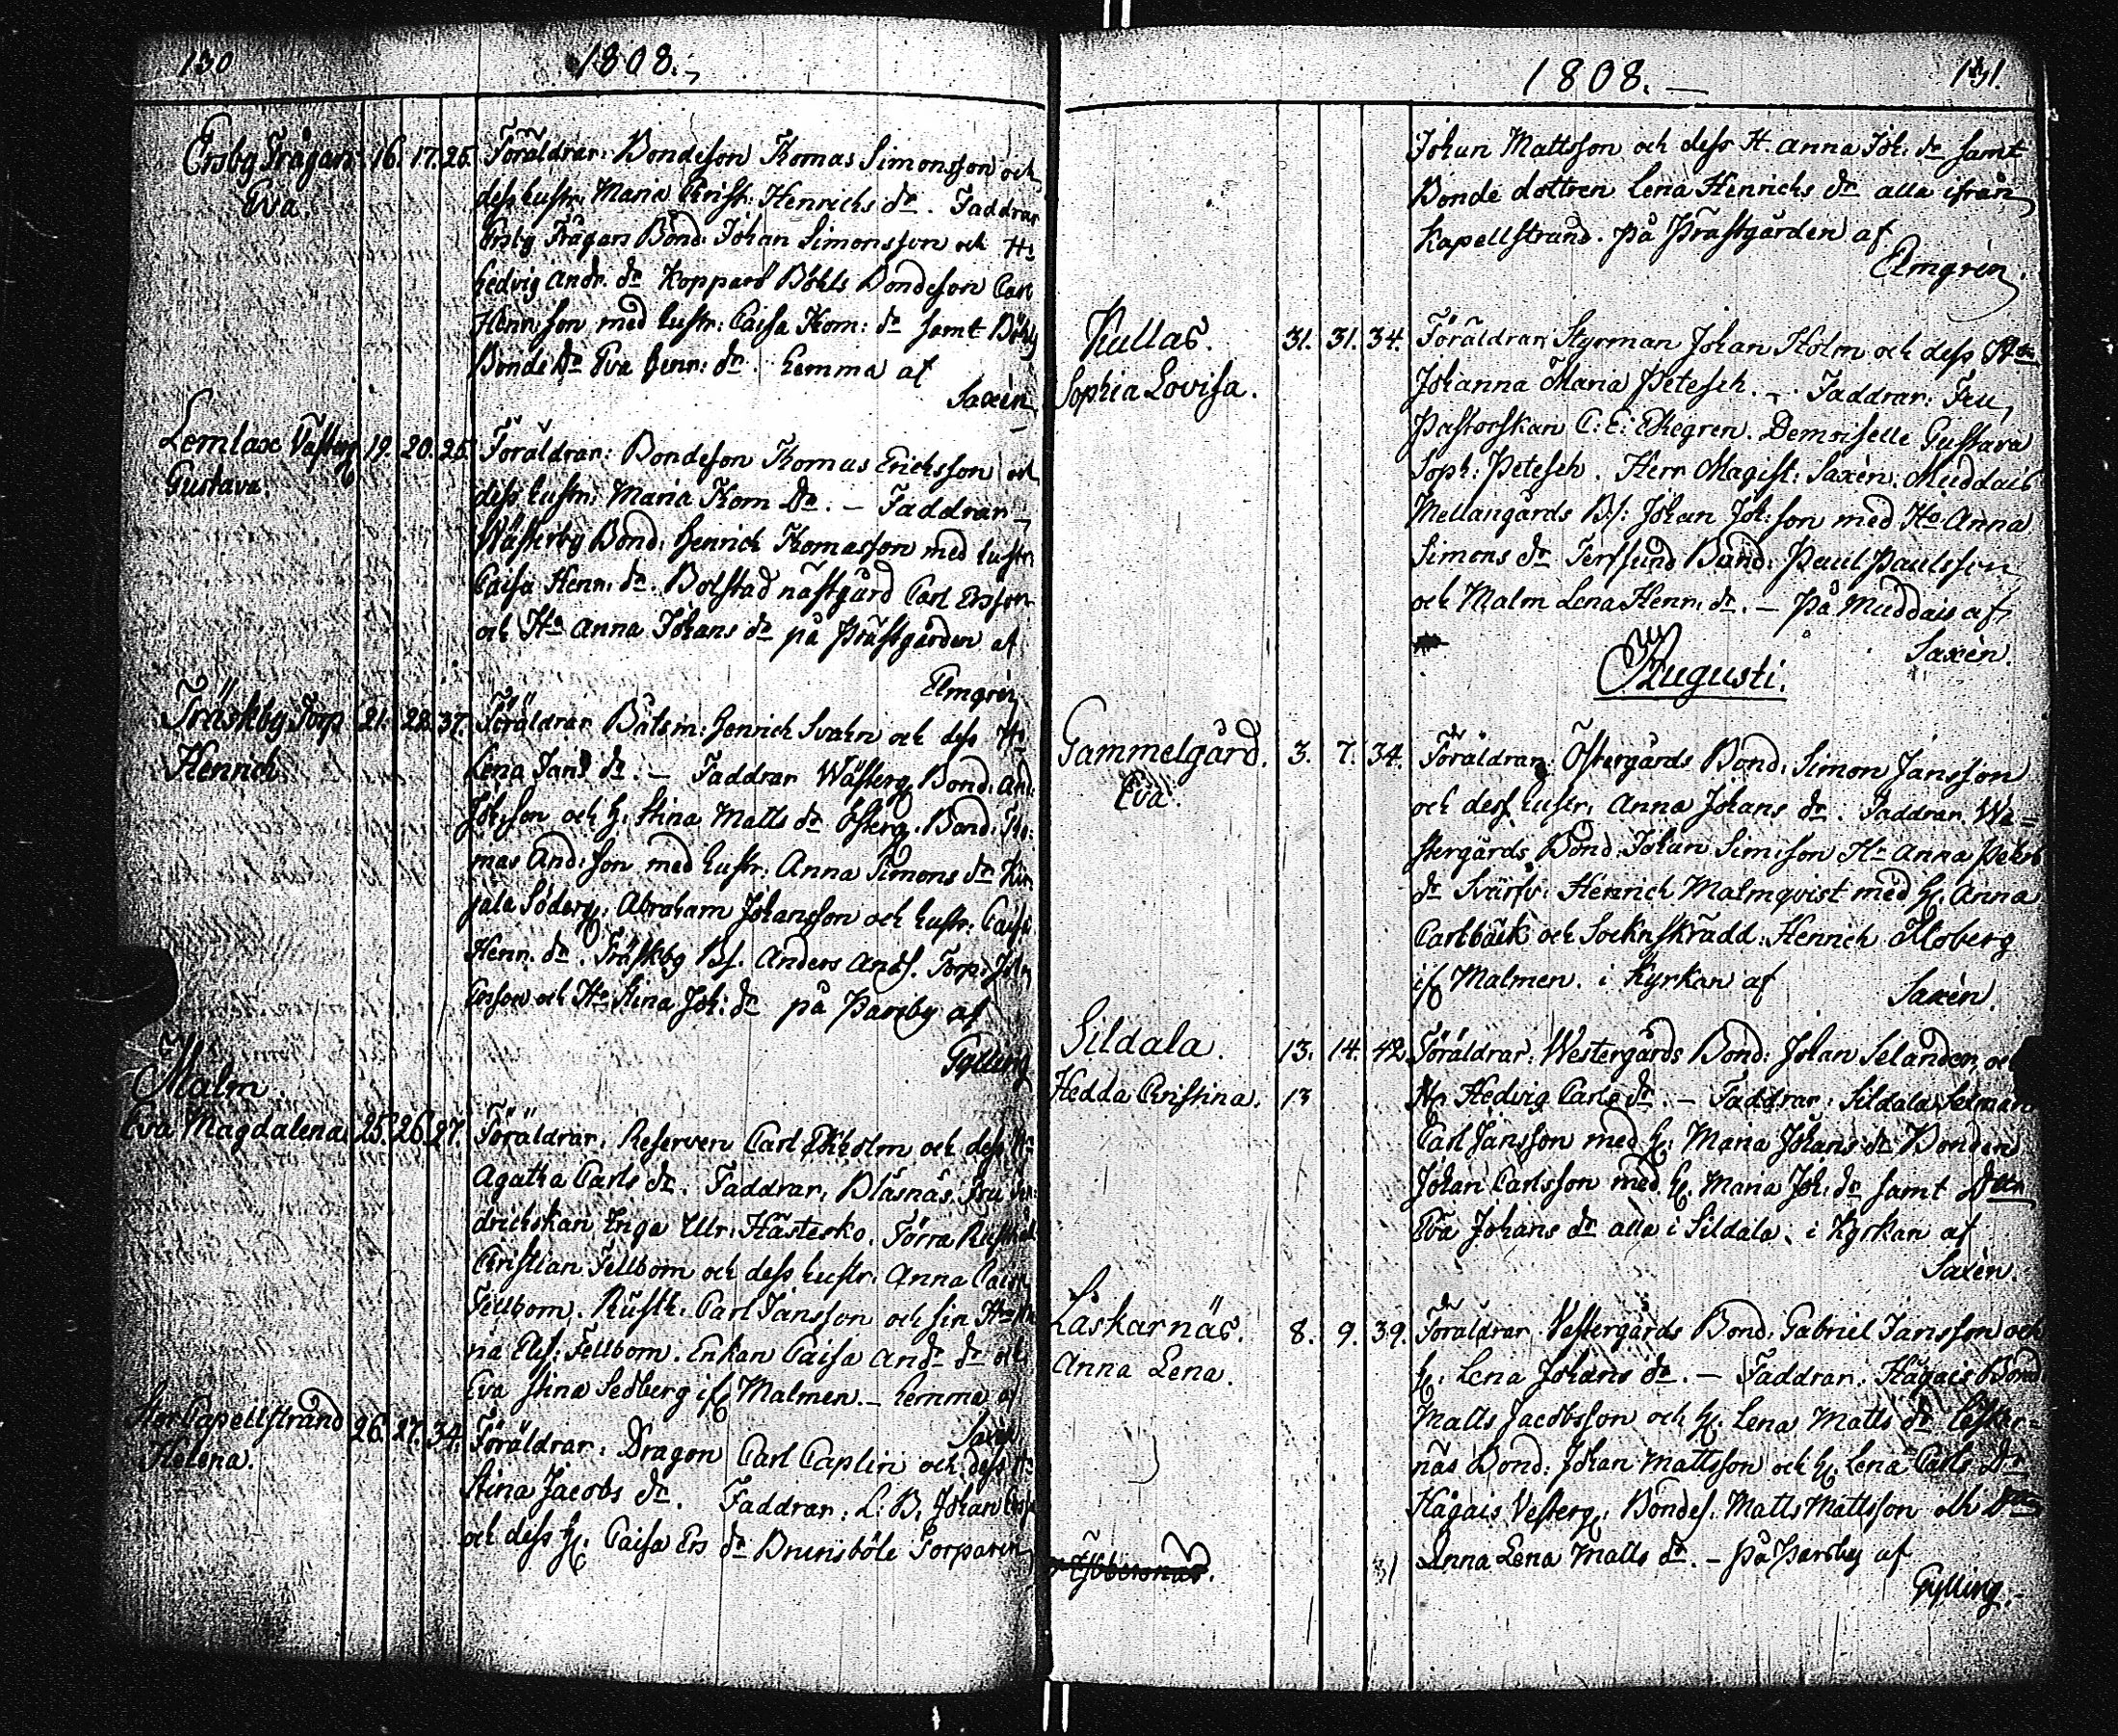 130 1808.
Ersby Trågars 16. 17. 25. Föräldrar: Bondeson Thomas Simonsson och
Eva. dess hustr: Maria Christ: Henrichs dr. Faddrar
Ersby Trågars Bond: Johan Simonsson och Ha
Hedvig Andr. dr Koppars Böhls Bondeson Carl
Henr:son med hustr: Caisa Thom: dr samt Böhls
Bonde Dr Eva Henr: dr. hemma af
Saxèn
Lemlax Västerg 19. 20. 25. Föräldrar: Bondeson Thomas Erichsson och
Gustava. dess hustr: Maria Thom Dr. – Faddrar
Wästerby Bond: Henrich Thomasson med hustr
Caisa Henr: dr. Bolstad nästgård Carl Ersson
och Ha Anna Johans dr på Prästgården af
Elmgrén
Träskby Torp 21. 22. 37. Föräldrar Båtsm: Henrich Svahn och dess Ha
Henrich Lena Jans dr. – Faddrar Wästerg. Bond: And:
Joh:son och H. Stina Matts dr Österg. Bond: Tho:
mas And:son med hustr: Anna Simons dr Kir
jala Söderg: Abraham Johansson och hustr: Caisa
Henr. dr. Träskby Bs. Anders Ands. Torp: Joh
Ersson och Ha Stina Joh: dr på Parsby af
Gylling
Malm.
Eva Magdalena 25. 26. 27. Föräldrar: Reserven Carl Ekholm och dess Ha
Agatha Carls dr. Faddrar: Bläsnäs Fru
drichskan Inga Ulr: Hästesko. Förra Rusth
Christian Fellbom och dess hustr: Anna Caisa
Fellbom. Rusth: Carl Jansson och sin Ha
ria Elis: Fellbom. Enkan Caisa Andr dr och
Eva Stina Sedberg ifr Malmen. – hemma af
Saxèn
Stor Capellstrand 26. 27. 34. Föräldrar: Dragon Carl Caplin och dess Ha
Helena. Stina Jacobs dr. Faddrar: L: B. Johan Ers
och dess H: Caisa Ers dr Brunsböle Torparen
1808. – 131.
Johan Mattsson och dess H. Anna Joh: dr samt
Bonde dottren Lena Henrichs dr alla ifrån
Kapellstrand. på Prästgården af
Elmgrén.
Kullas. 31. 31. 34. Föräldrar Styrman Johan Holm och dess
Sophia Lovisa. Johanna Maria Petesch. – Faddrar: Fru
Pastorskan C: E: Ekegren. Demoiselle Gustava
Soph: Petesch. Herr Magist: Saxèn. Muddais
Mellangårds B:s: Johan Joh:son med Ha Anna
Simons dr Terfsund Bond: Paul Paulsson
och Malm Lena Henr: dr. – på Muddais af
Saxèn.
Augusti.
Gammelgård. 3. 7. 34. Föräldrar: Östergårds Bond: Simon Jansson
Eva. och dess hustr: Anna Johans dr. Faddrar. We=
stergårds Bond: Johan Sim:son Ha Anna Peters
dr Svärfv: Henrich Malmqvist med H. Anna
Carlbäck och Socknskrädd: Henrich Moberg
ifr Malmen. i Kyrkan af Saxèn.
Sildala. 13. 14. 42 Föräldrar: Westergårds Bond: Johan Selander, och
Hedda Christina. 13 Hr Hedvig Carls dr. – Faddrar: Sildala
Carl Jansson med H: Maria Johans dr Bonden
Johan Carlsson med H: Maria Joh: dr samt Dttr
Eva Johans dr alla i Sildala. i Kyrkan af
Saxèn.
Laskarnäs. 8. 9. 39. Föräldrar Vestergårds Bond: Gabriel Jansson och
Anna Lena. H: Lena Johans dr. – Faddrar: Hågais Bond:
Matts Jacobsson och H: Lena Matts dr Laskar=
näs Bond: Johan Mattsson och H: Lena Carls Dr
Hågais Vesterg: Bondes. Matts Mattsson och Dttr
31 Anna Lena Matts dr. – på Parsby af
Gylling. –